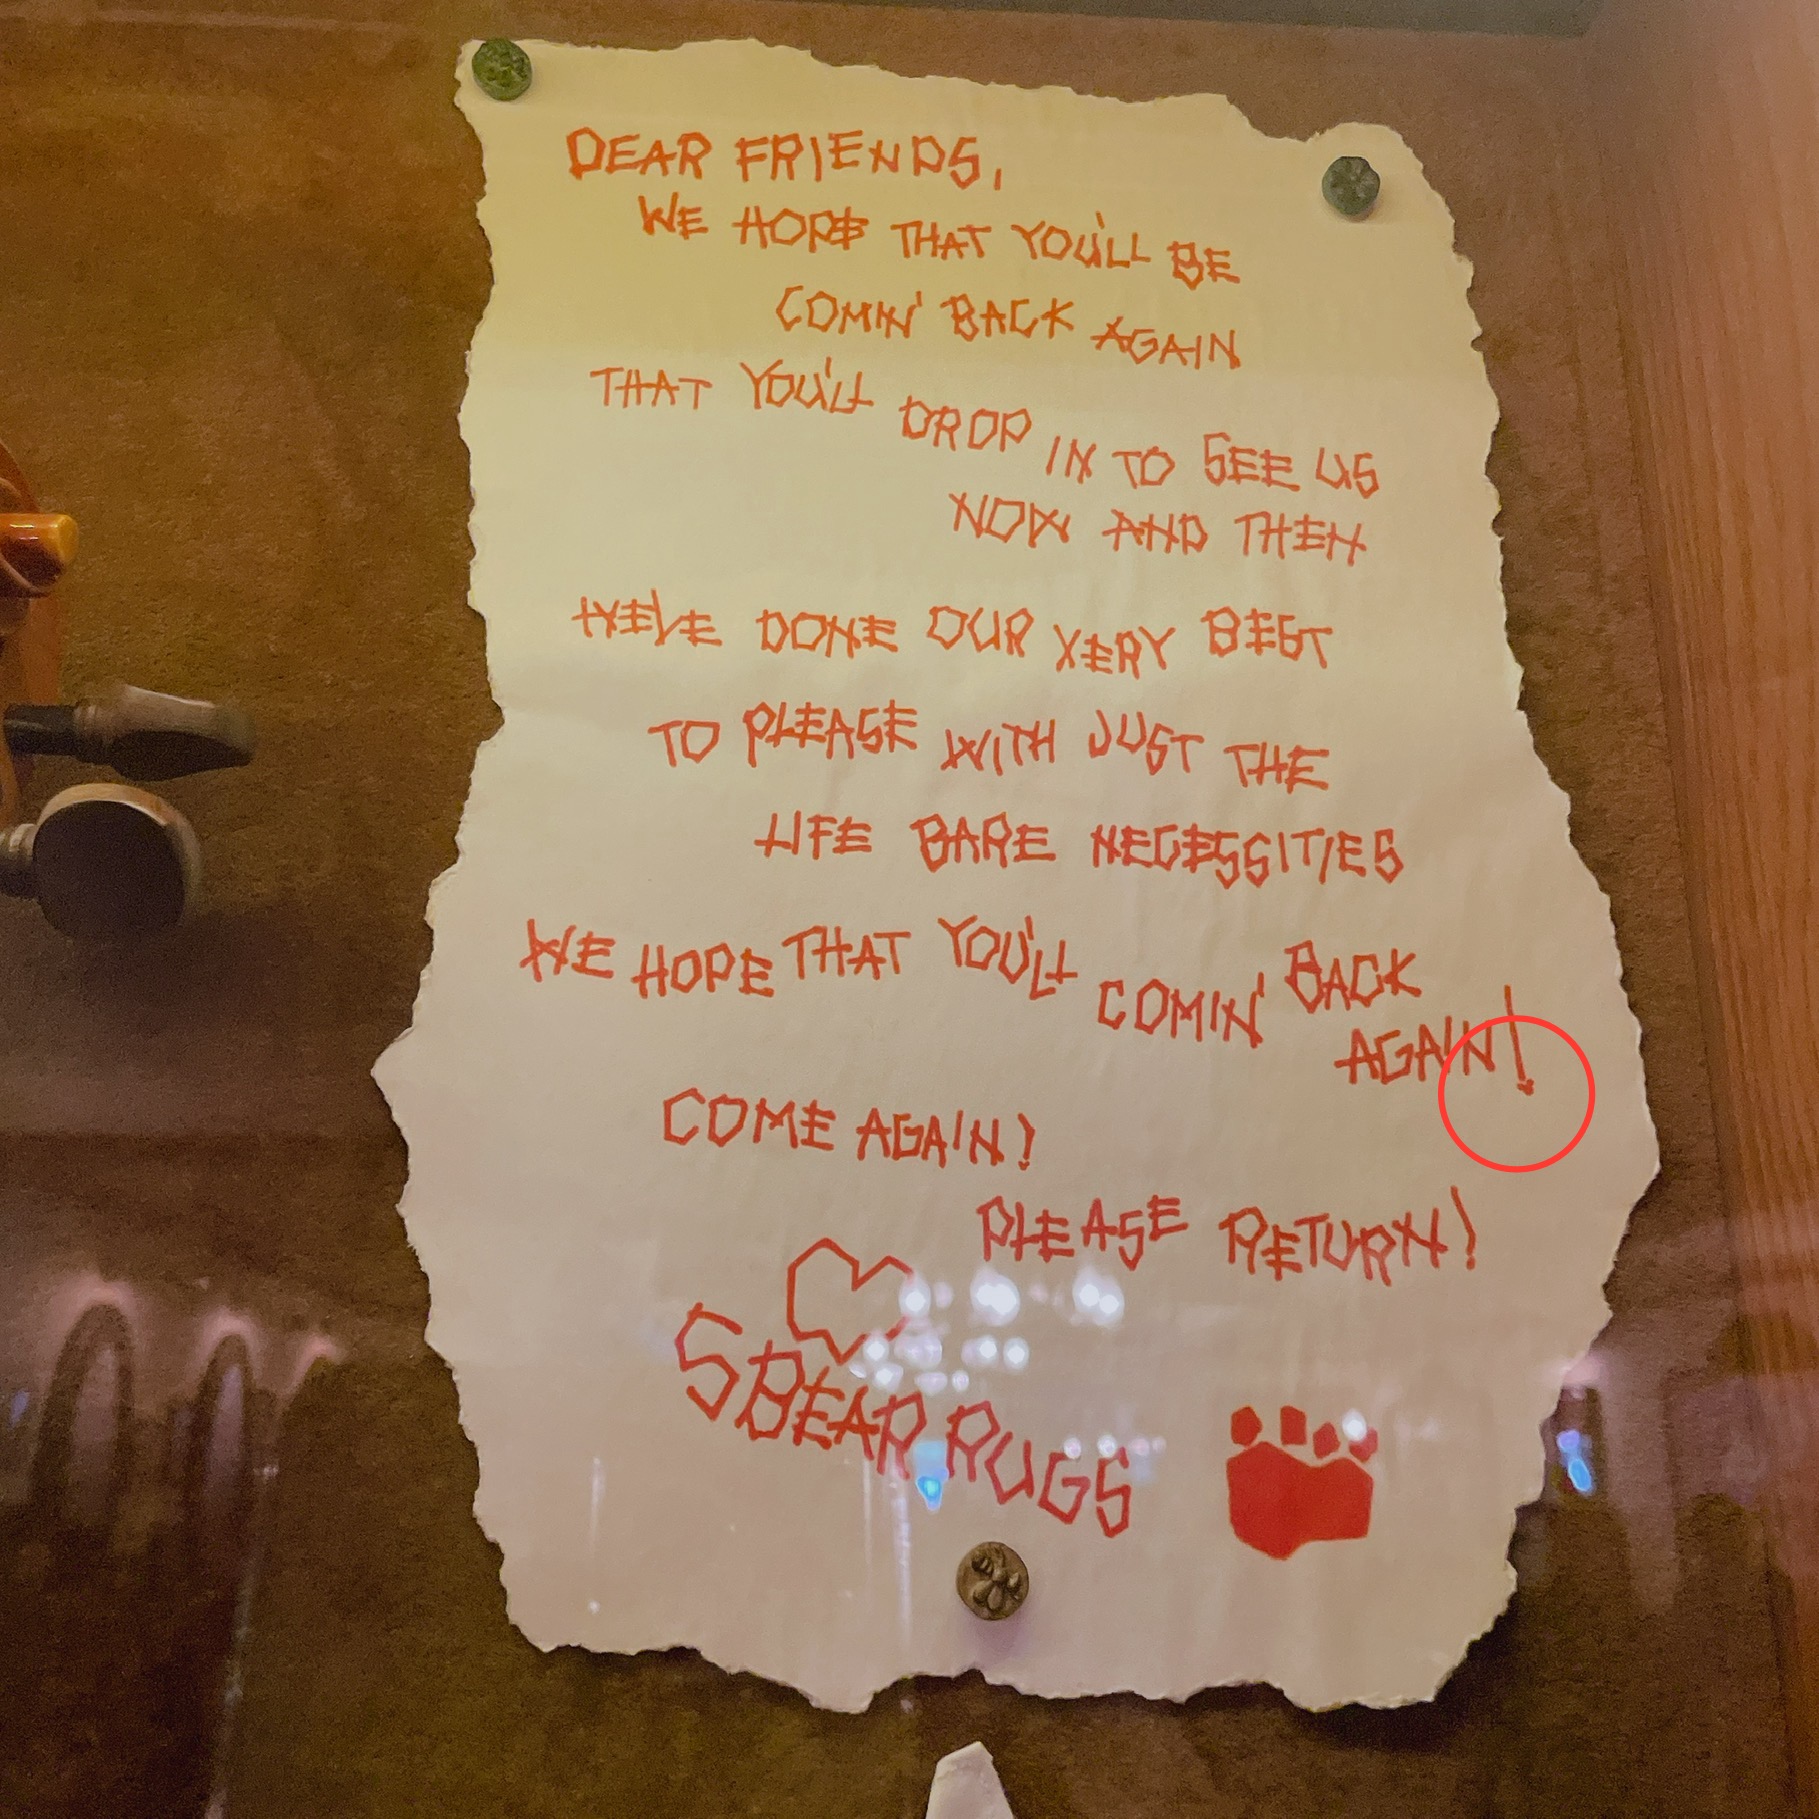 DEAR FRIENDS,
WE HOPE THAT YOU'LL BE
COMIN' BACK AGAIN
THAT YOU'LL DROP IN TO SEE US
NOW AND THEN
WE'VE DONE OUR VERY BEST
TO PLEASE WITH JUST THE
LIFE BARE NECESSITIES
WE HOPE THAT YOU'LL COMIN' BACK
AGAIN!
COME AGAIN!
PLEASE RETURN!
5 BEAR RUGS